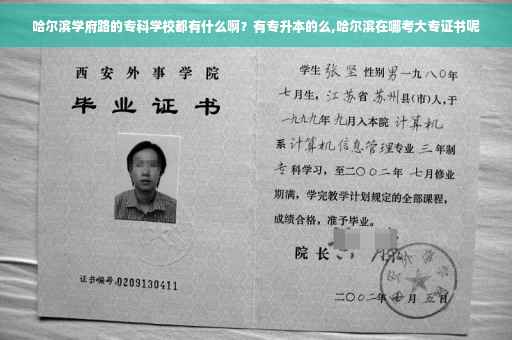 哈尔滨学府路的专科学校都有什么啊？有专升本的么,哈尔滨在哪考大专证书呢
西安外事学院
毕业证书
证书编号:0209130411
学生 张坚 性别 男 一九八〇年
七月生, 江苏省 苏州 县(市)人, 于
一九九九年 九月入本院 计算机
系 计算机信息管理 专业 三 年制
专科学习, 至二〇〇二年 七月修业
期满, 学完教学计划规定的全部课程,
成绩合格, 准予毕业。
院长
二〇〇二年 七月 五日